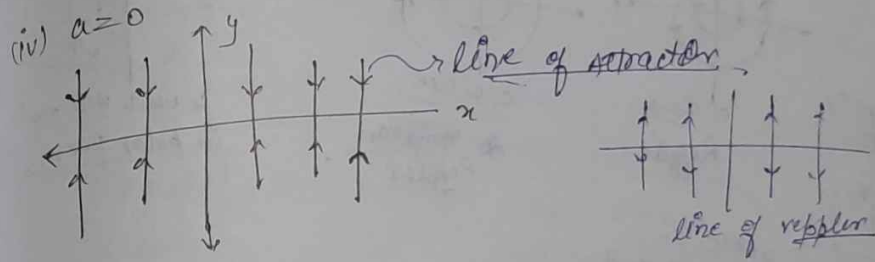 (iv) a=0
y
line of Attractor
x
line of reppler